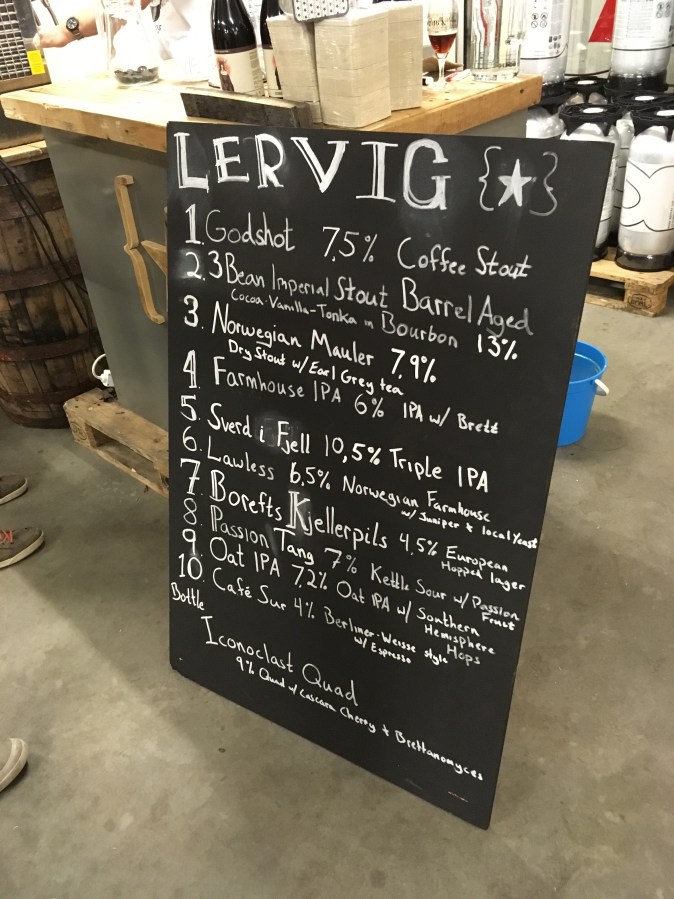 LERVIG {★}
1. Godshot 7,5% Coffee Stout
2. 3 Bean Imperial Stout Barrel Aged
Cocoa-Vanilla-Tonka in Bourbon 13%
3. Norwegian Mauler 7,9%
Dry Stout w/ Earl Grey tea
4 Farmhouse IPA 6% IPA w/ Brett
5. Sverd i Fjell 10,5% Triple IPA
6. Lawless 6,5% Norwegian Farmhouse
w/ Juniper & local Yeast
7 Borefts Kjellerpils 4,5% European
Hopped lager
8. Passion Tang 7% Kettle Sour w/ Passion
Fruit
9 Oat IPA 7,2% Oat IPA w/ Southern
Hemisphere
Hops
10. Café Sur 4% Berliner-Weisse style
w/ Espresso
Bottle
Iconoclast Quad
9% Quad w/ Cascara Cherry & Brettanomyces